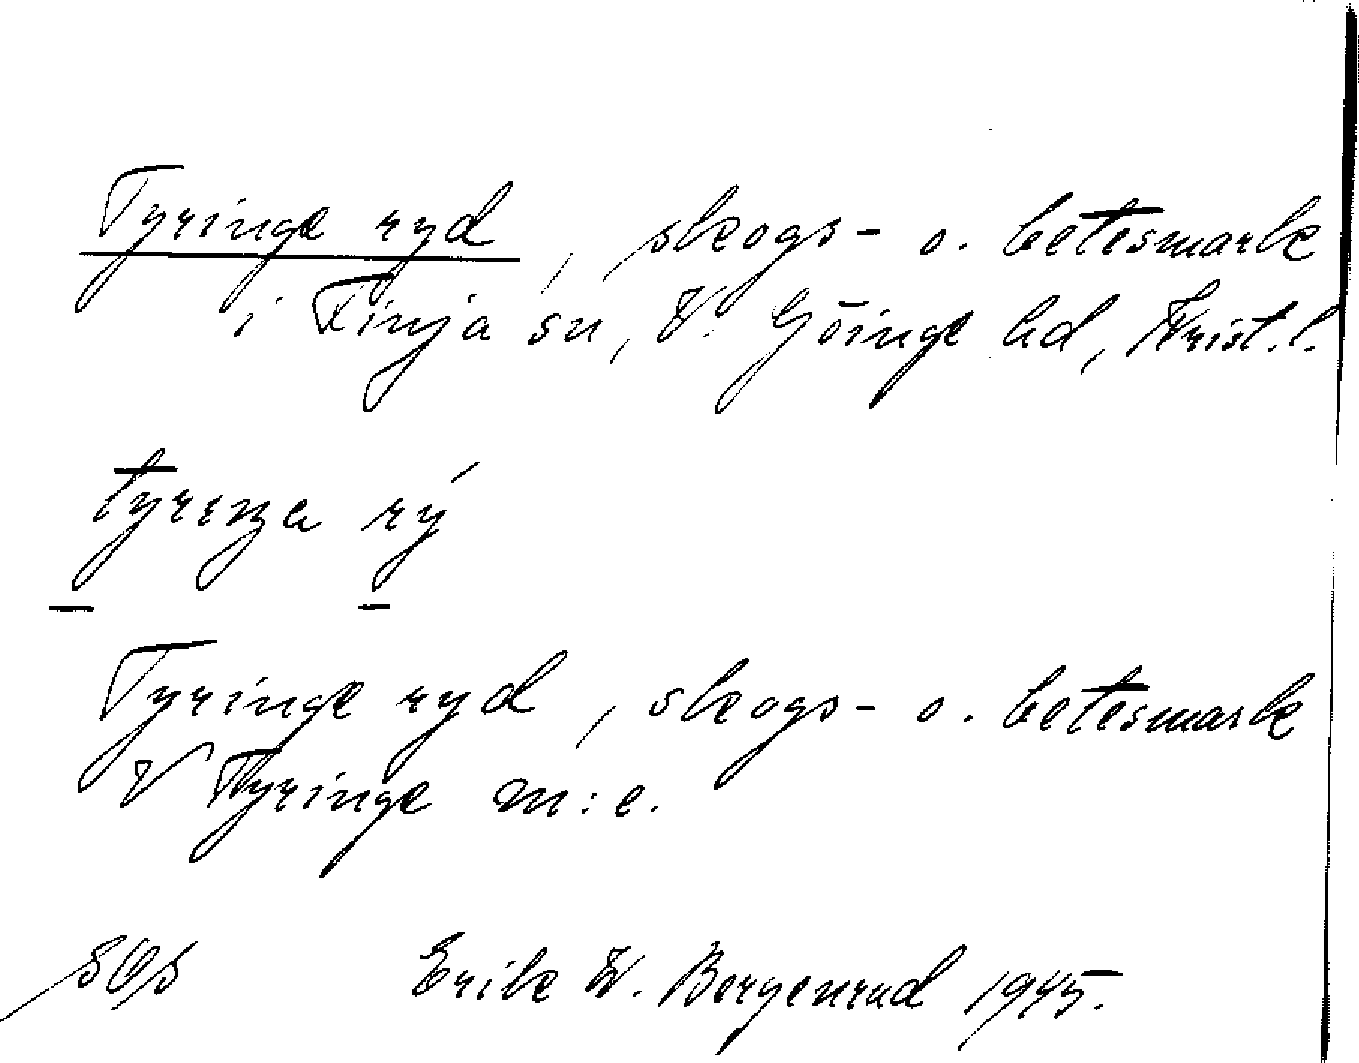 Tyringe ryd, skogs- o. betesmark
i Finja sn, V. Göinge hd, Krist. l.
tyrɪŋa rý
Tyringe ryd, skogs- o. betesmark
V Tyringe m:e.
Erik W. Bergenrud 1945.